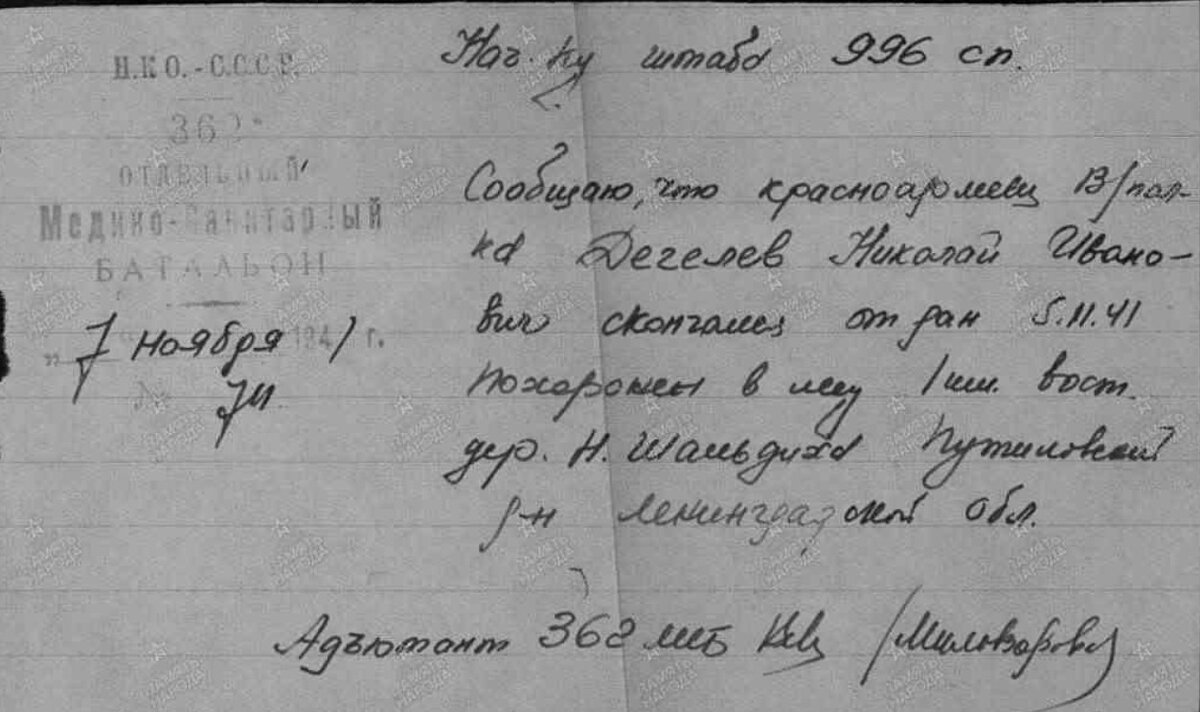 Н.К.О.-С.С.С.Р.
362
ОТДЕЛЬНЫЙ
Медико-Санитарный
БАТАЛЬОН
„7" ноября 1941 г.
№
Нач-ку штаба 996 сп.
Сообщаю, что красноармеец В/пол-
ка Дегелев Николай Ивано-
вич скончался от ран 5.11.41
Похоронен в лесу 1 км. вост.
дер. Н. Шальдиха Путиловский
р-н Ленинградской обл.
Адъютант 362 мсб
ПАМЯТЬ НАРОДА